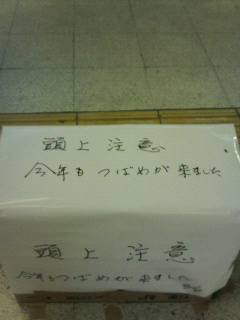 頭上注意
今年もつばめが来ました
頭上注意
今年もつばめが来ました